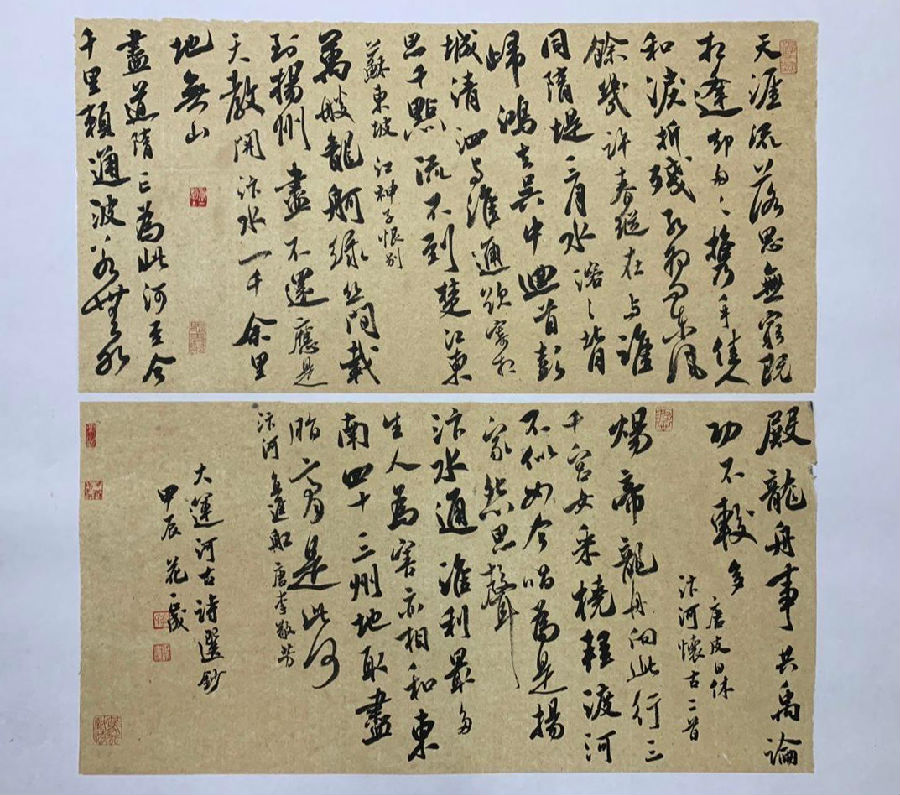 天涯流落思無窮既
相逢却匆々攜手佳人
和淚折殘紅為問東風
餘幾許春縱在与誰
同隋堤三月水溶々背
歸鴻去吳中迴首彭
城清泗与淮通欲寄相
思千點流不到楚江東
蘇東坡 江神子恨別
萬艘龍舸綠丝間載
到揚州盡不還應是
天教開汴水一千余里
地無山
盡道隋亡為此河至今
千里賴通波若無水
殿龍舟事共禹論
功不較多
唐皮日休
汴河懷古二首
煬帝龍舟向此行三
千宮女采橈輕渡河
不似如今唱為是揚
家怨思聲
汴水通淮利最多
生人為害亦相和東
南四十三州地取盡
脂膏是此河
汴河直進船 唐李敬芳
大運河古詩選鈔
甲辰花